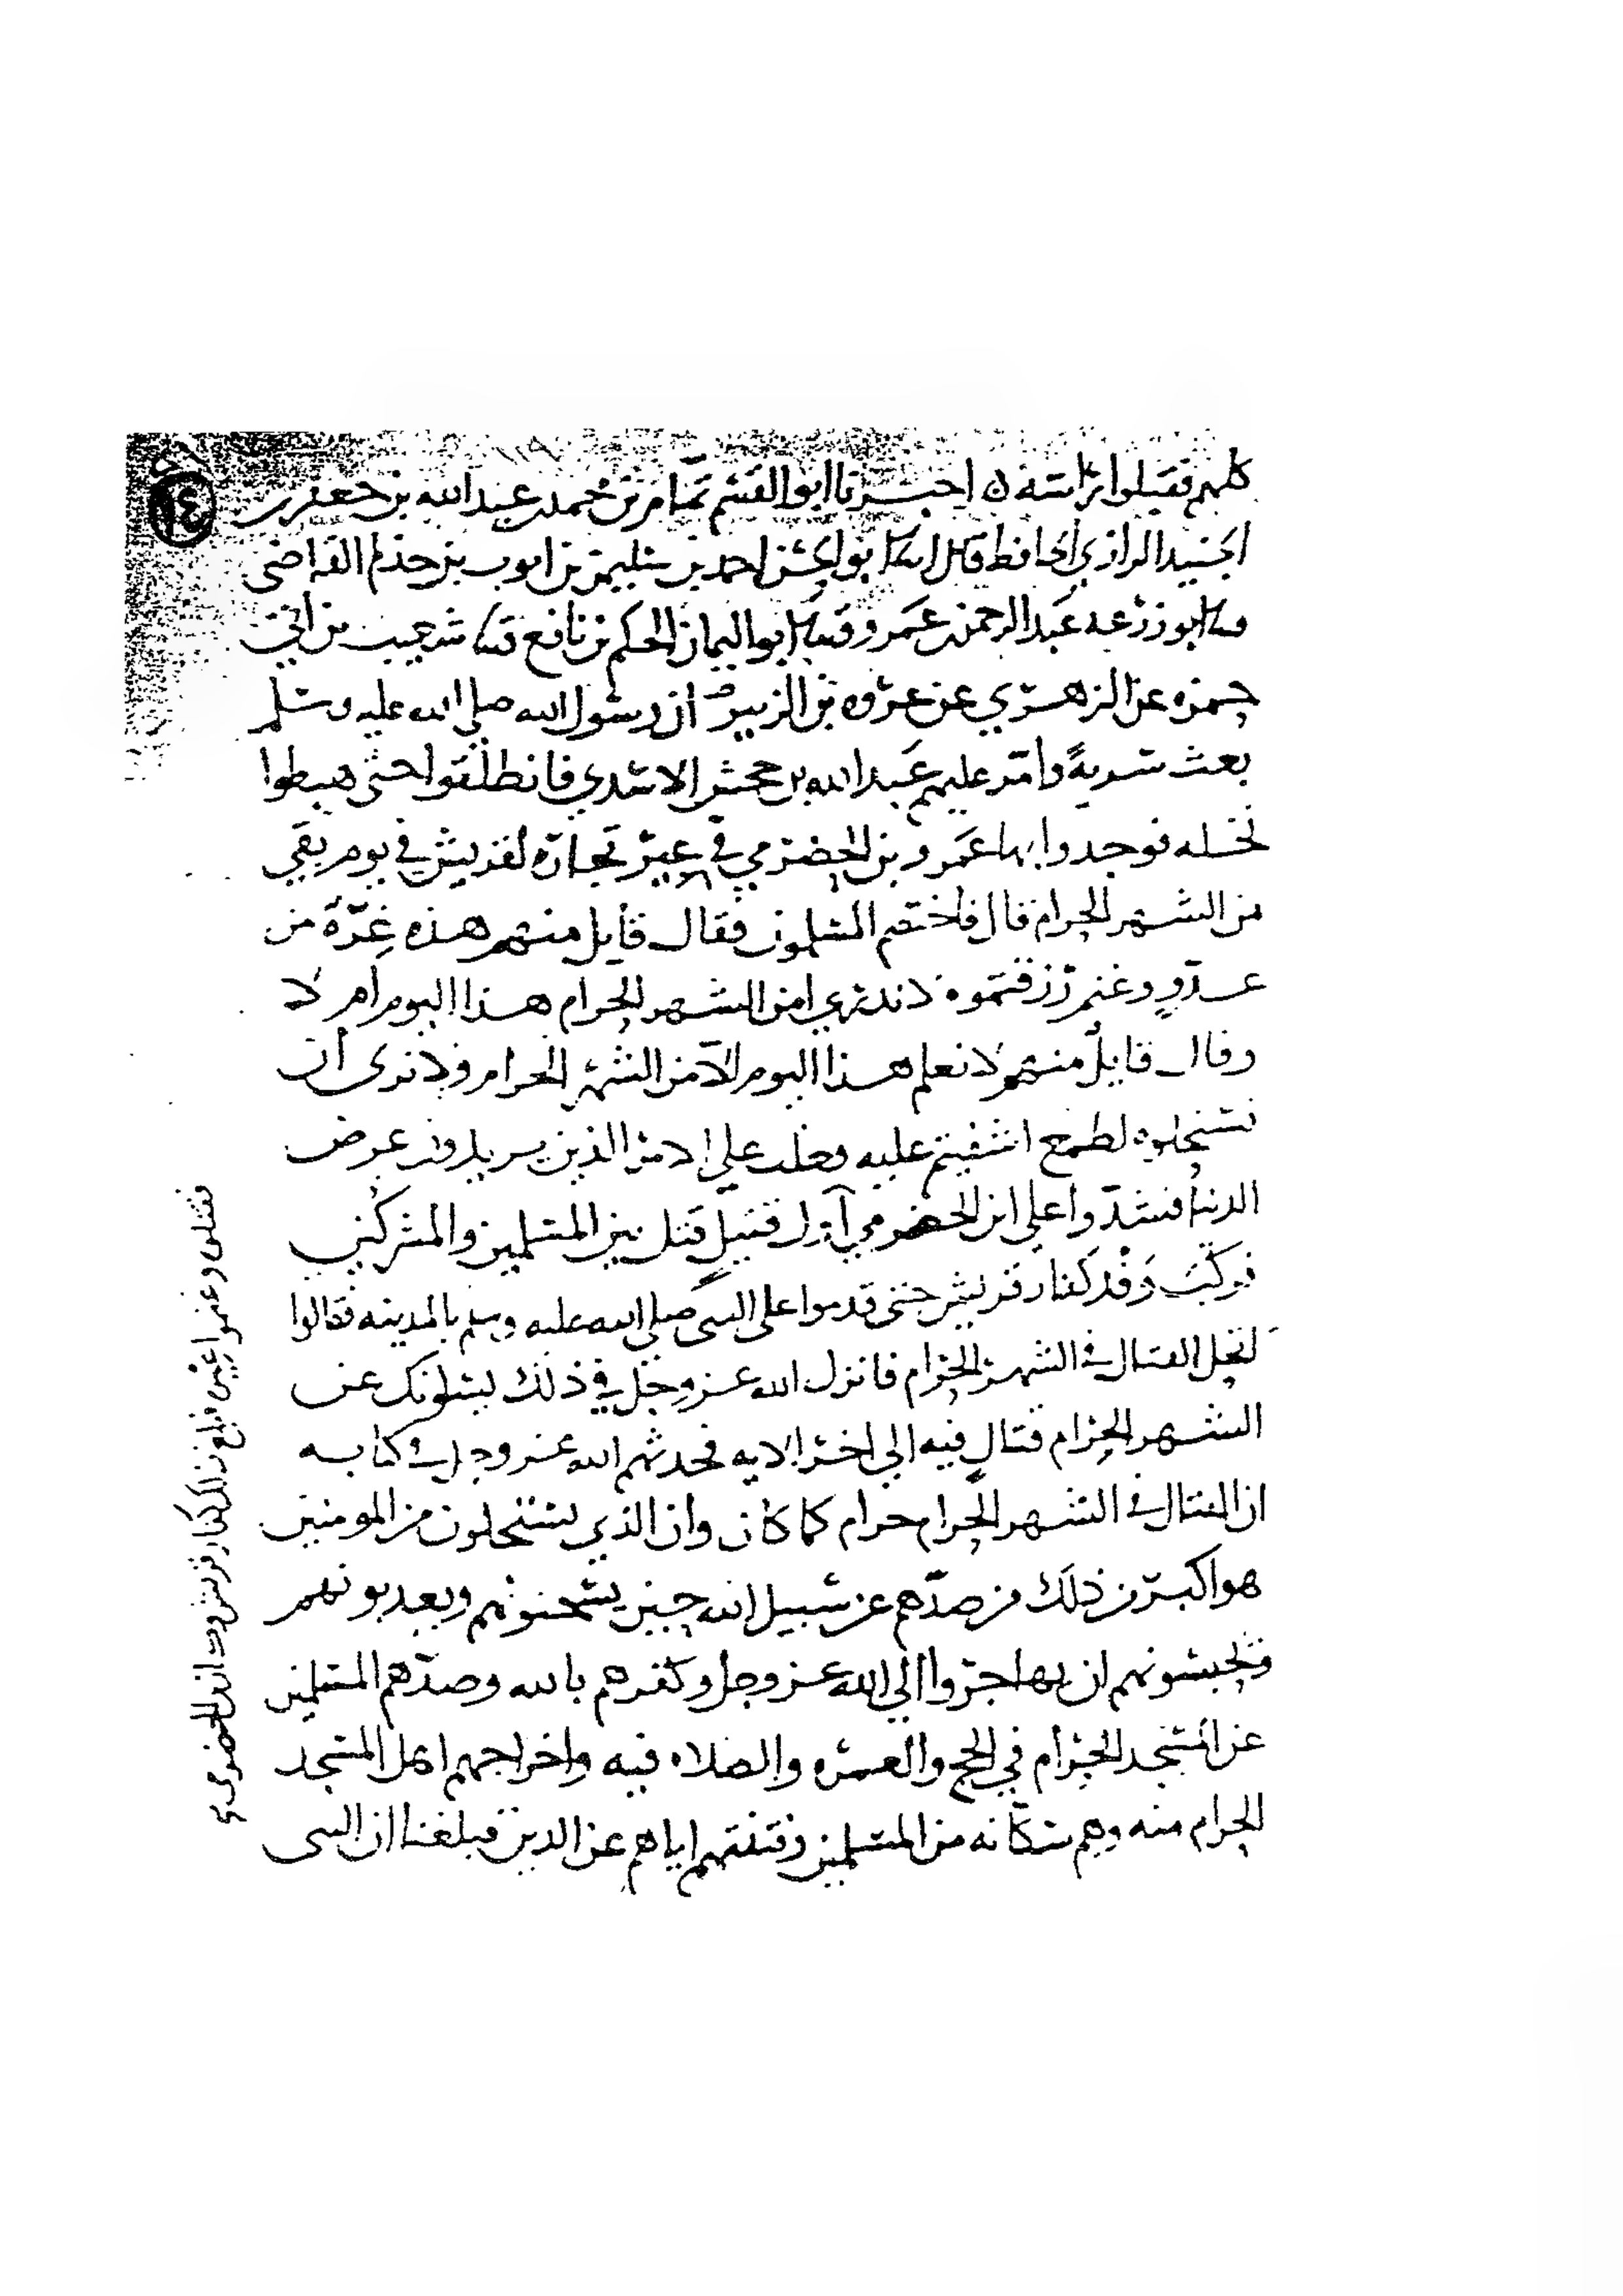 كلهم فقبلوا راسه ه اخبرنا ابو القسم تمام بن محمد بن عبد الله بن جعفر بن
الجنيد الرازي الحافظ قال انبا ابو الحسن احمد بن سليمن بن ايوب بن حذلم القاضي
ثنا ابو زرعه عبد الرحمن بن عمرو ثنا ابو اليمان الحكم بن نافع ثنا شعيب بن ابي
حمزه عن الزهري عن عروه بن الزبير ان رسول الله صلى الله عليه وسلم
بعث سرية وامر عليهم عبد الله بن جحش الاسدي فانطلقوا حتى هبطوا
نخله فوجدوا بها عمرو بن الحضرمي في عير تجارة لقريش في يوم بقي
من الشهر الحرام قال فاختصم المسلمون فقال قايل منهم هذه غرة من
عدو وغنم رزقتموه لا ندري امن الشهر الحرام هذا اليوم ام لا
وقال قايل منهم لا نعلم هذا اليوم الا من الشهر الحرام ولا نرى أن
تستحلوه لطمع اشفيتم عليه وغلب على الامر الذين يريدون عرض
الدنيا فشدوا على ابن الحضرمي اول قتيل قتل بين المسلمين والمشركين
فركب وفد كفار قريش حتى قدموا على النبي صلى الله عليه وسلم بالمدينه فقالوا
اتحل القتال في الشهر الحرام فانزل الله عز وجل في ذلك يسلونك عن
الشهر الحرام قتال فيه الى اخر الايه فحدثهم الله عز وجل في كتابه
ان القتال في الشهر الحرام حرام كما كان وان الذي يستحلون من المومنين
هو اكبر من ذلك من صدهم عن سبيل الله حين يسجنونهم ويعذبونهم
ويحبسونهم ان يهاجروا الى الله عز وجل وكفرهم بالله وصدهم المسلمين
عن المسجد الحرام في الحج والعمره والصلاه فيه واخراجهم اهل المسجد
الحرام منه وهم سكانه من المسلمين وفتنتهم اياهم عن الدين فبلغنا ان النبي
وغنموا عيره فبلغ ذلك كفار قريش وكان ابن الحضرمي